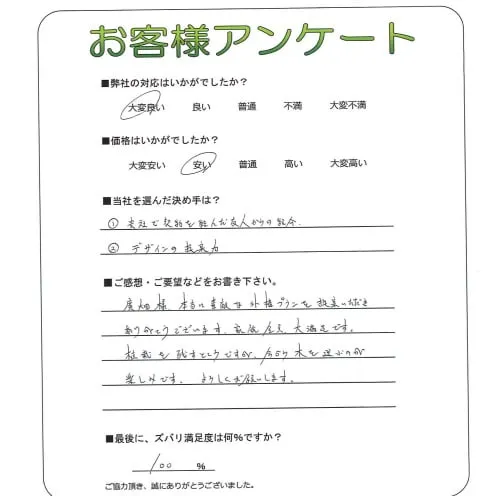 お客様アンケート
■弊社の対応はいかがでしたか？
大変良い 良い 普通 不満 大変不満
■価格はいかがでしたか？
大変安い 安い 普通 高い 大変高い
■当社を選んだ決め手は？
① 貴社で契約を結んだ友人からの紹介.
② デザインの提案力
■ご感想・ご要望などをお書き下さい。
廣畑様、本当に素敵な外構プランを提案いただき
ありがとうございます。家族全員、大満足です。
植栽を残すところですが、今から木を選ぶのが
楽しみです。よろしくお願いします。
■最後に、ズバリ満足度は何%ですか？
100 %
ご協力頂き、誠にありがとうございました。